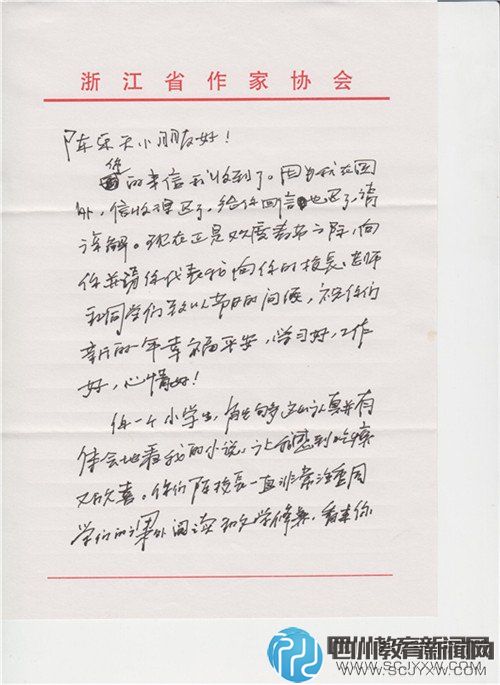 浙江省作家协会
陈乐天小朋友好！
你的来信我收到了。因为我在国
外，信收得迟了，给你回信也迟了，请
谅解。现在正是欢度春节之际，向
你并请你代表我向你的校长、老师
和同学们致以节日的问候，祝你们
新的一年幸福平安，学习好，工作
好，心情好！
你一个小学生，能够这么认真并有
体会地看我的小说，让我感到吃惊
又欣喜。你们陈校长一直非常注重同
学们的课外阅读和文学修养，看来你
四川教育新闻网
WWW.SCJYXW.COM